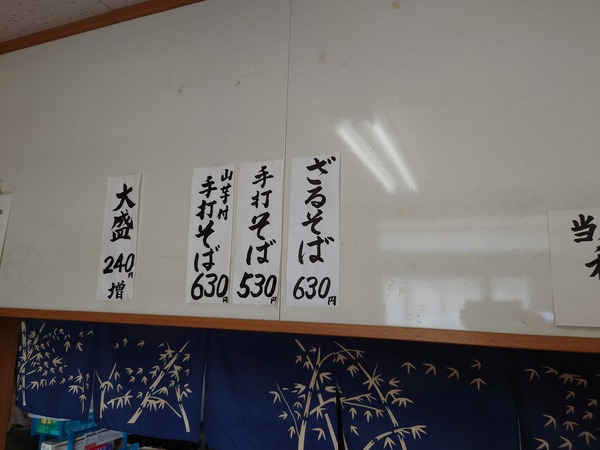 ざるそば 630円
手打そば 530円
山芋付
手打そば 630円
大盛 240円増
当